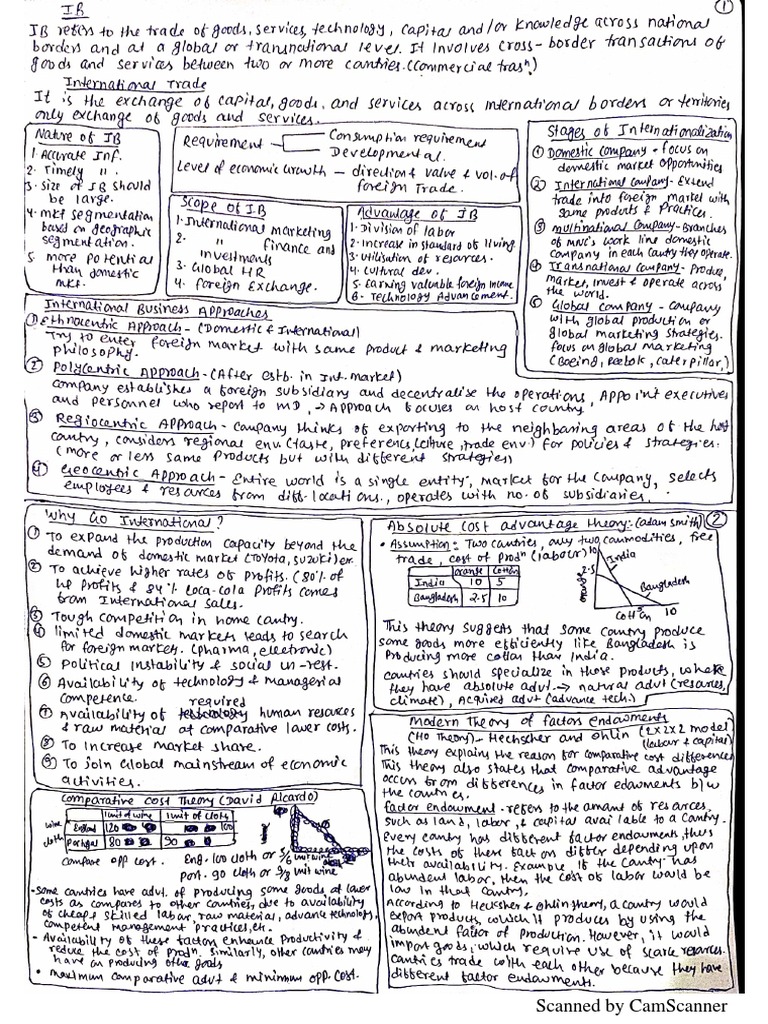 IB
①
IB refers to the trade of goods, services, technology, capital and/or knowledge across national
borders and at a global or transnational level. It involves cross-border transactions of
goods and services between two or more cantries. (Commercial trasⁿ)
International Trade
It is the exchange of capital, goods, and services across international borders or territories
only exchange of goods and services.
Nature of IB
1. Accurate Inf.
2. Timely "
3. Size of IB should
be large.
4. mkt segmentation
based on geographic
segmentation.
5. more potential
than domestic
mkt.
Requirement
Consumption requirement
Developmental.
Level of economic Growth - direction & value & vol. of
foreign Trade.
Scope of IB
1. International marketing
2. " finance and
investments
3. Global HR
4. Foreign Exchange.
Advantage of IB
1. Division of labor
2. Increase in standard of living
3. Utilisation of resorces.
4. Cultural dev.
5. Earning valuable foreign income
6. Technology Advancement.
Stages of Internationalization
① Domestic company - focus on
domestic market opportunities
② International Company - Extend
trade into foreign market with
same products & Practices.
③ multinational company - Branches
of mnc's work line domestic
company in each cantry they operate.
④ Transnational Company - Produce,
market, invest & operate across
the world.
⑤ Global company - Company
with global production or
global marketing strategies.
focus on global marketing
(Boeing, Reebok, caterpillar,)
International Business Approaches
① Ethnocentric Approach - (Domestic & International)
Try to enter foreign market with same product & marketing
philosophy.
② Polycentric Approach - (After estb. in Int. market)
company establishes a foreign subsidiary and decentralise the operations, Appoint executives
and personnel who report to MD, → Approach focuses on host country
③ Regiocentric Approach - Company thinks of exporting to the neighbaring areas of the host
cantry, considers regional env. (taste, preference, culture, trade env.) for policies & strategies.
(more or less same products but with different strategies)
④ Geocentric Approach - Entire world is a single entity, market for the company, selects
employees & resarces from diff. locations., operates with no. of subsidiaries.
Why Go International?
① To expand the production capacity beyond the
demand of domestic market (Toyota, suzuki)
② To achieve higher rates of profits. (80% of
HP Profits & 84% Coca-cola Profits comes
from International sales.
③ Tough competition in home cantry.
④ limited domestic markets leads to search
for foreign market. (pharma, electronic)
⑤ Political instability & social un-rest.
⑥ Availability of technology & managerial
competence.
⑦ Availability of required human resarces
& raw material at comparative lawer costs.
⑧ To increase market share.
⑨ To join Global mainstream of economic
activities.
②
Absolute cost advantage theory:- (adam smith)
• Assumption:- Two cantries, only two commodities, free
trade, cost of prodⁿ (labour)
orange Cotton
India 10 5
Bangladesh 2.5 10
10
India
2.5
orange
Bangladesh
Cottⁿ 10
This theory suggests that some cantry produce
some goods more efficiently like Bangladesh is
Producing more cotton than India.
cantries should specialize in those products, where
they have absolute advt. → natural advt (resarces,
climate), Acquired advt (advance tech.)
Modern Theory of factors endawments
(HO Theory) - Heckscher and Ohlin (2x2x2 model)
(labour & capital)
This theory explains the reason for comparative cost differences
This theory also states that comparative advantage
occurs from differences in factor edawments b/w
the cantries.
factor endowment - refers to the amant of resarces,
such as land, labor, & capital available to a cantry.
Every cantry has different factor endawments, thus
the costs of these factors differ depending upon
their availability. Example if the cantry has
abundent labor, then the cost of labor would be
law in that cantry.
According to Hecksher & Ohlin theory, a cantry would
export products, which it produces by using the
abundent factor of production. However, it would
import goods, which require use of scarce resarces.
Cantries trade with each other because they have
different factor endawments.
Comparative cost Theory (David Ricardo)
1 unit of wine 1 unit of cloth
wine
cloth
England 120 100
Portugal 80 90
compare opp cost. Eng. 100 cloth or 5/6 unit wine
Port. 90 cloth or 9/8 unit wine
- Some cantries have advt. of producing some goods at lawer
costs as compares to other cantries, due to availability
of cheap & skilled labar, raw material, advance technology,
competent management practices, etc.
- Availability of these factors enhance productivity &
reduce the cost of prodⁿ. similarly, other cantries may
have on producing other goods
• maximum comparative advt & minimum opp. cost.
Scanned by CamScanner